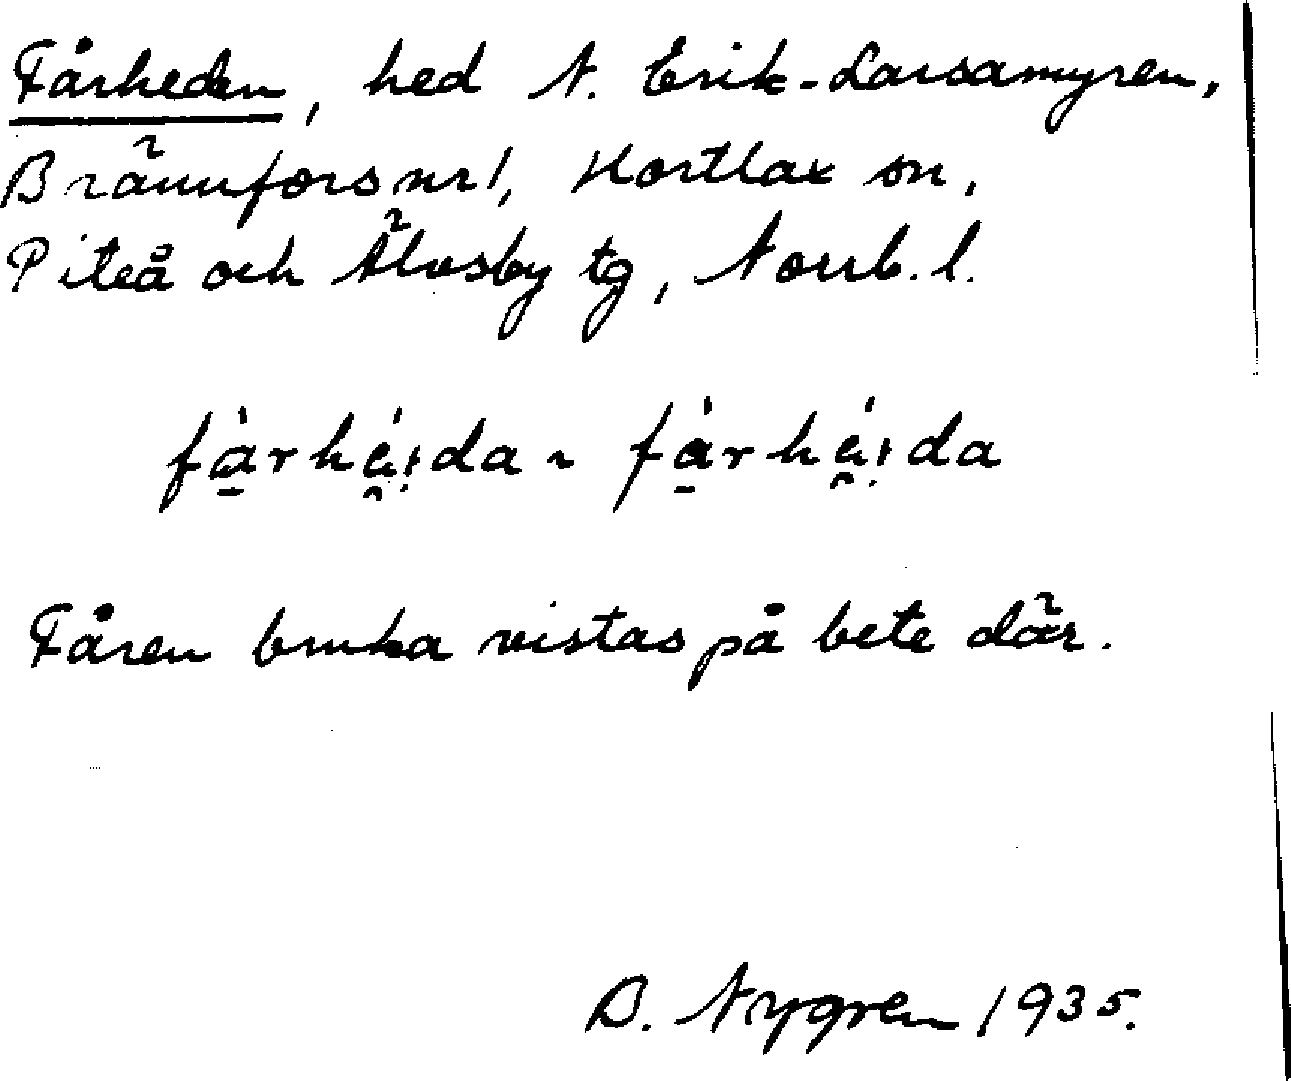 Fårheden, hed N. Erik-Larsamyren,
Brännfors nr 1, Hortlax sn,
Piteå och Älvsby tg, Norrb. l.
fàrhái̯da ~ fàrhái̯da
Fåren bruka vistas på bete där.
B. Nygren 1935.